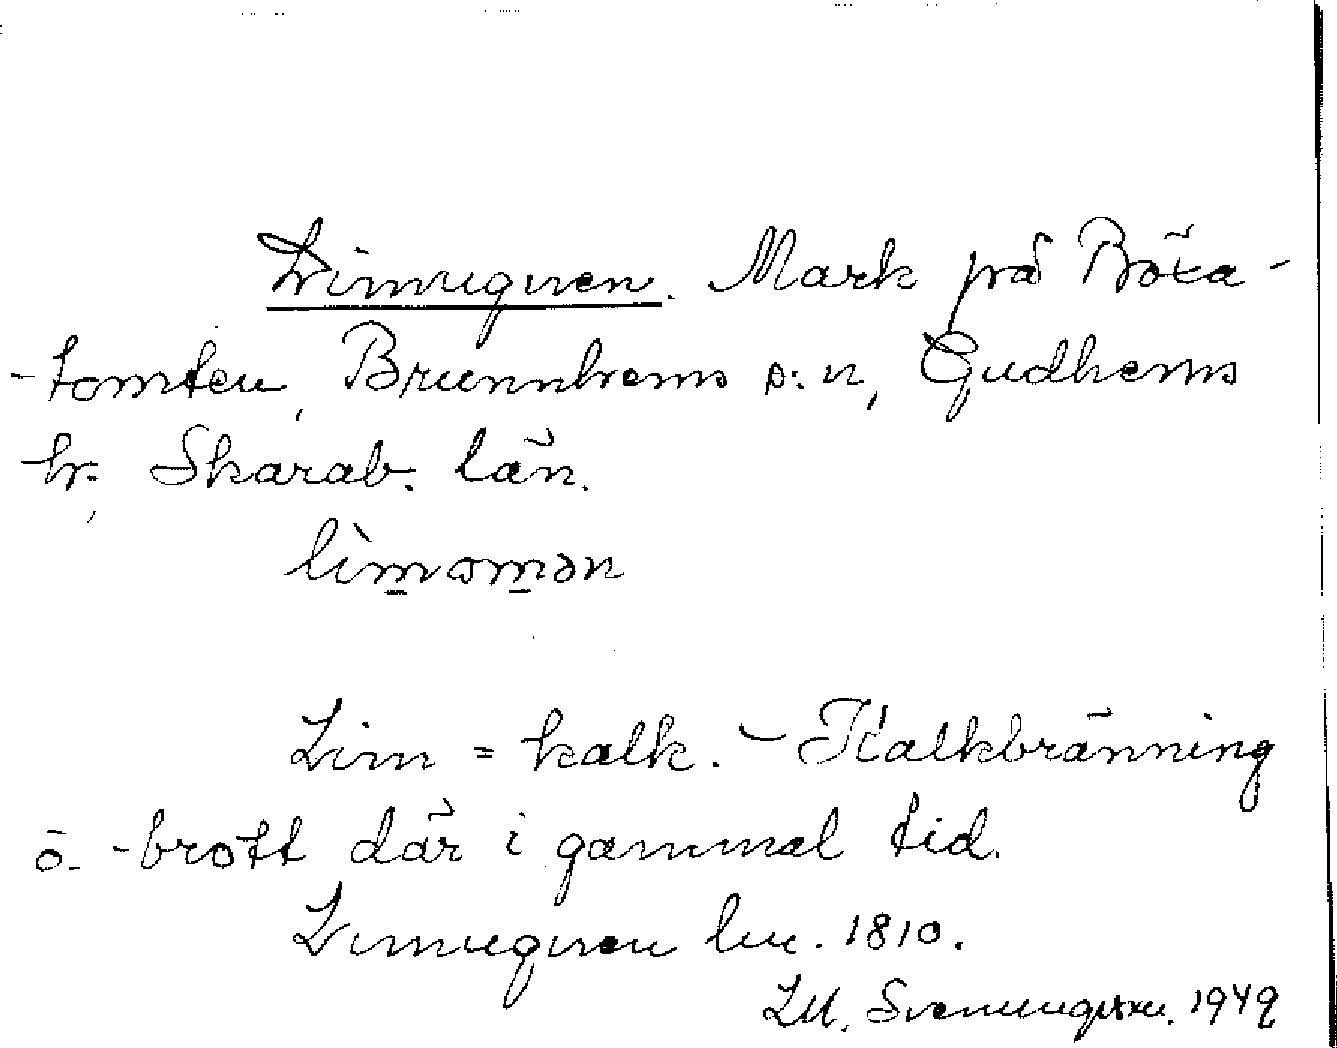 Limugnen. Mark på Böxa-
-tomten, Brunnhems s:n, Gudhems
hr., Skarab. län.
lìm̲ɷm̲ən
Lim = kalk. - Kalkbränning
o. -brott där i gammal tid.
Limugnen lm. 1810.
LM. Svenungsson. 1949